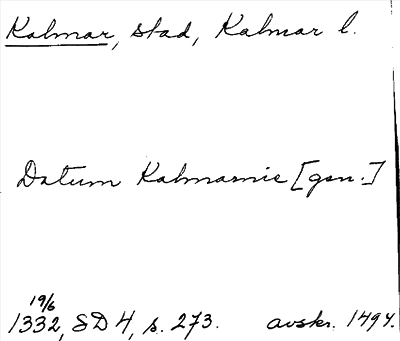 Kalmar, stad, Kalmar l.
Datum Kalmarnie [gen.]
19/6
1332, SD 4, s. 273. avskr. 1494.